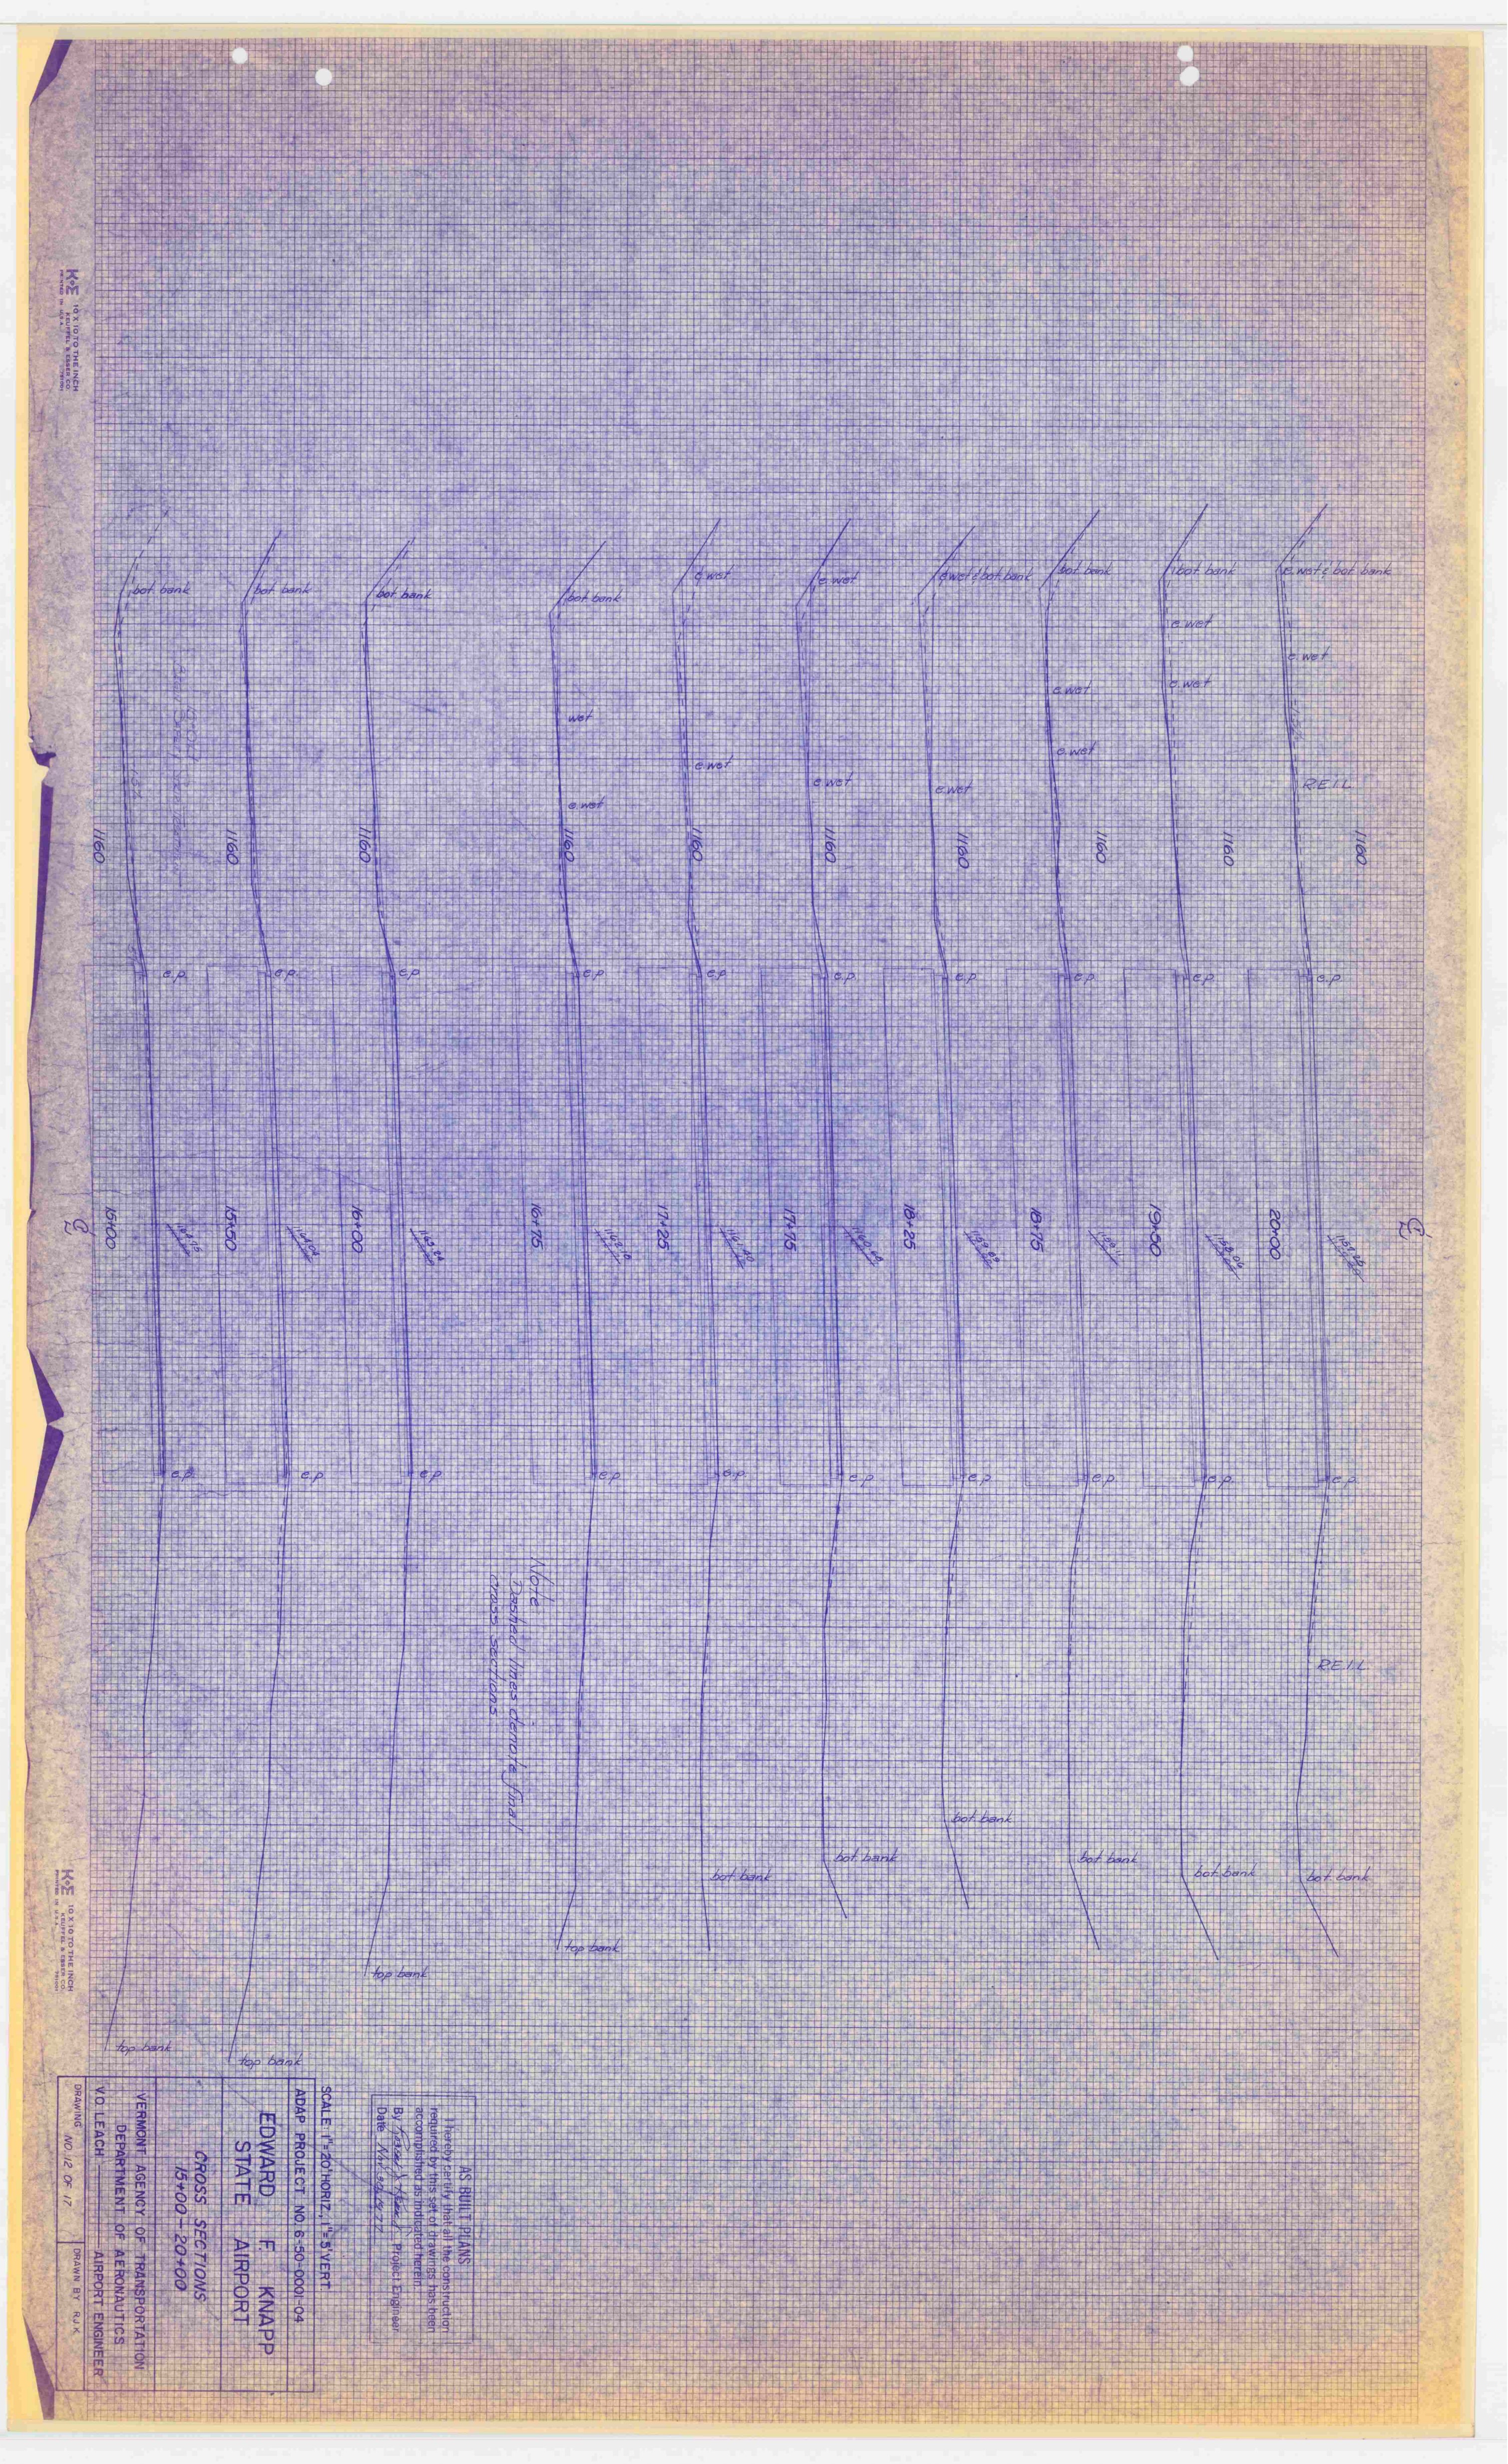 bot bank
bot bank
bot bank
bot bank
e wet
e. wet
e wet & bot bank
bot bank
bot bank
e. wet & bot bank
e. wet
e. wet
wet
e. wet
e. wet
e. wet
e. wet
e. wet
e. wet
e. wet
REIL
1160
1160
1160
1160
1160
1160
1160
1160
1160
1160
e.p.
e.p.
e.p
e.p
e.p
e.p.
e.p
e.p.
e.p.
e.p.
15+00
15+50
16+00
16+75
17+25
17+75
18+25
18+75
19+50
20+00
℄
℄
e.p.
e.p
e.p
e.p
e.p.
e.p
e.p
e.p
e.p.
e.p.
REIL
Note
Dashed lines denote final
cross sections
bot. bank
bot. bank
bot. bank
bot bank
bot. bank
bot. bank
top bank
top bank
top bank
top bank
AS BUILT PLANS
I hereby certify that all the construction
required by this set of drawings has been
accomplished as indicated herein.
By Project Engineer
Date
SCALE: 1"=20' HORIZ, 1"=5' VERT
ADAP PROJECT NO. 6-50-0001-04
EDWARD F. KNAPP
STATE AIRPORT
CROSS SECTIONS
15+00-20+00
VERMONT AGENCY OF TRANSPORTATION
DEPARTMENT OF AERONAUTICS
V.O. LEACH AIRPORT ENGINEER
DRAWING NO. 12 OF 17 DRAWN BY R.J.K.
K+E 10 X 10 TO THE INCH
KEUFFEL & ESSER CO.
PRINTED IN U.S.A.
K+E 10 X 10 TO THE INCH
KEUFFEL & ESSER CO.
PRINTED IN U.S.A.